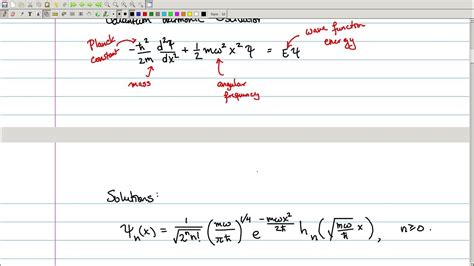 Quantum Harmonic Oscillator
Planck constant
wave function
energy
-ℏ²/2m d²Ψ/dx² + 1/2 mω²x²Ψ = EΨ
mass
angular frequency
Solutions:
Ψₙ(x) = 1/√(2ⁿn!) (mω/πℏ)^(1/4) e^(-mωx²/2ℏ) hₙ(√(mω/ℏ) x), n≥0.